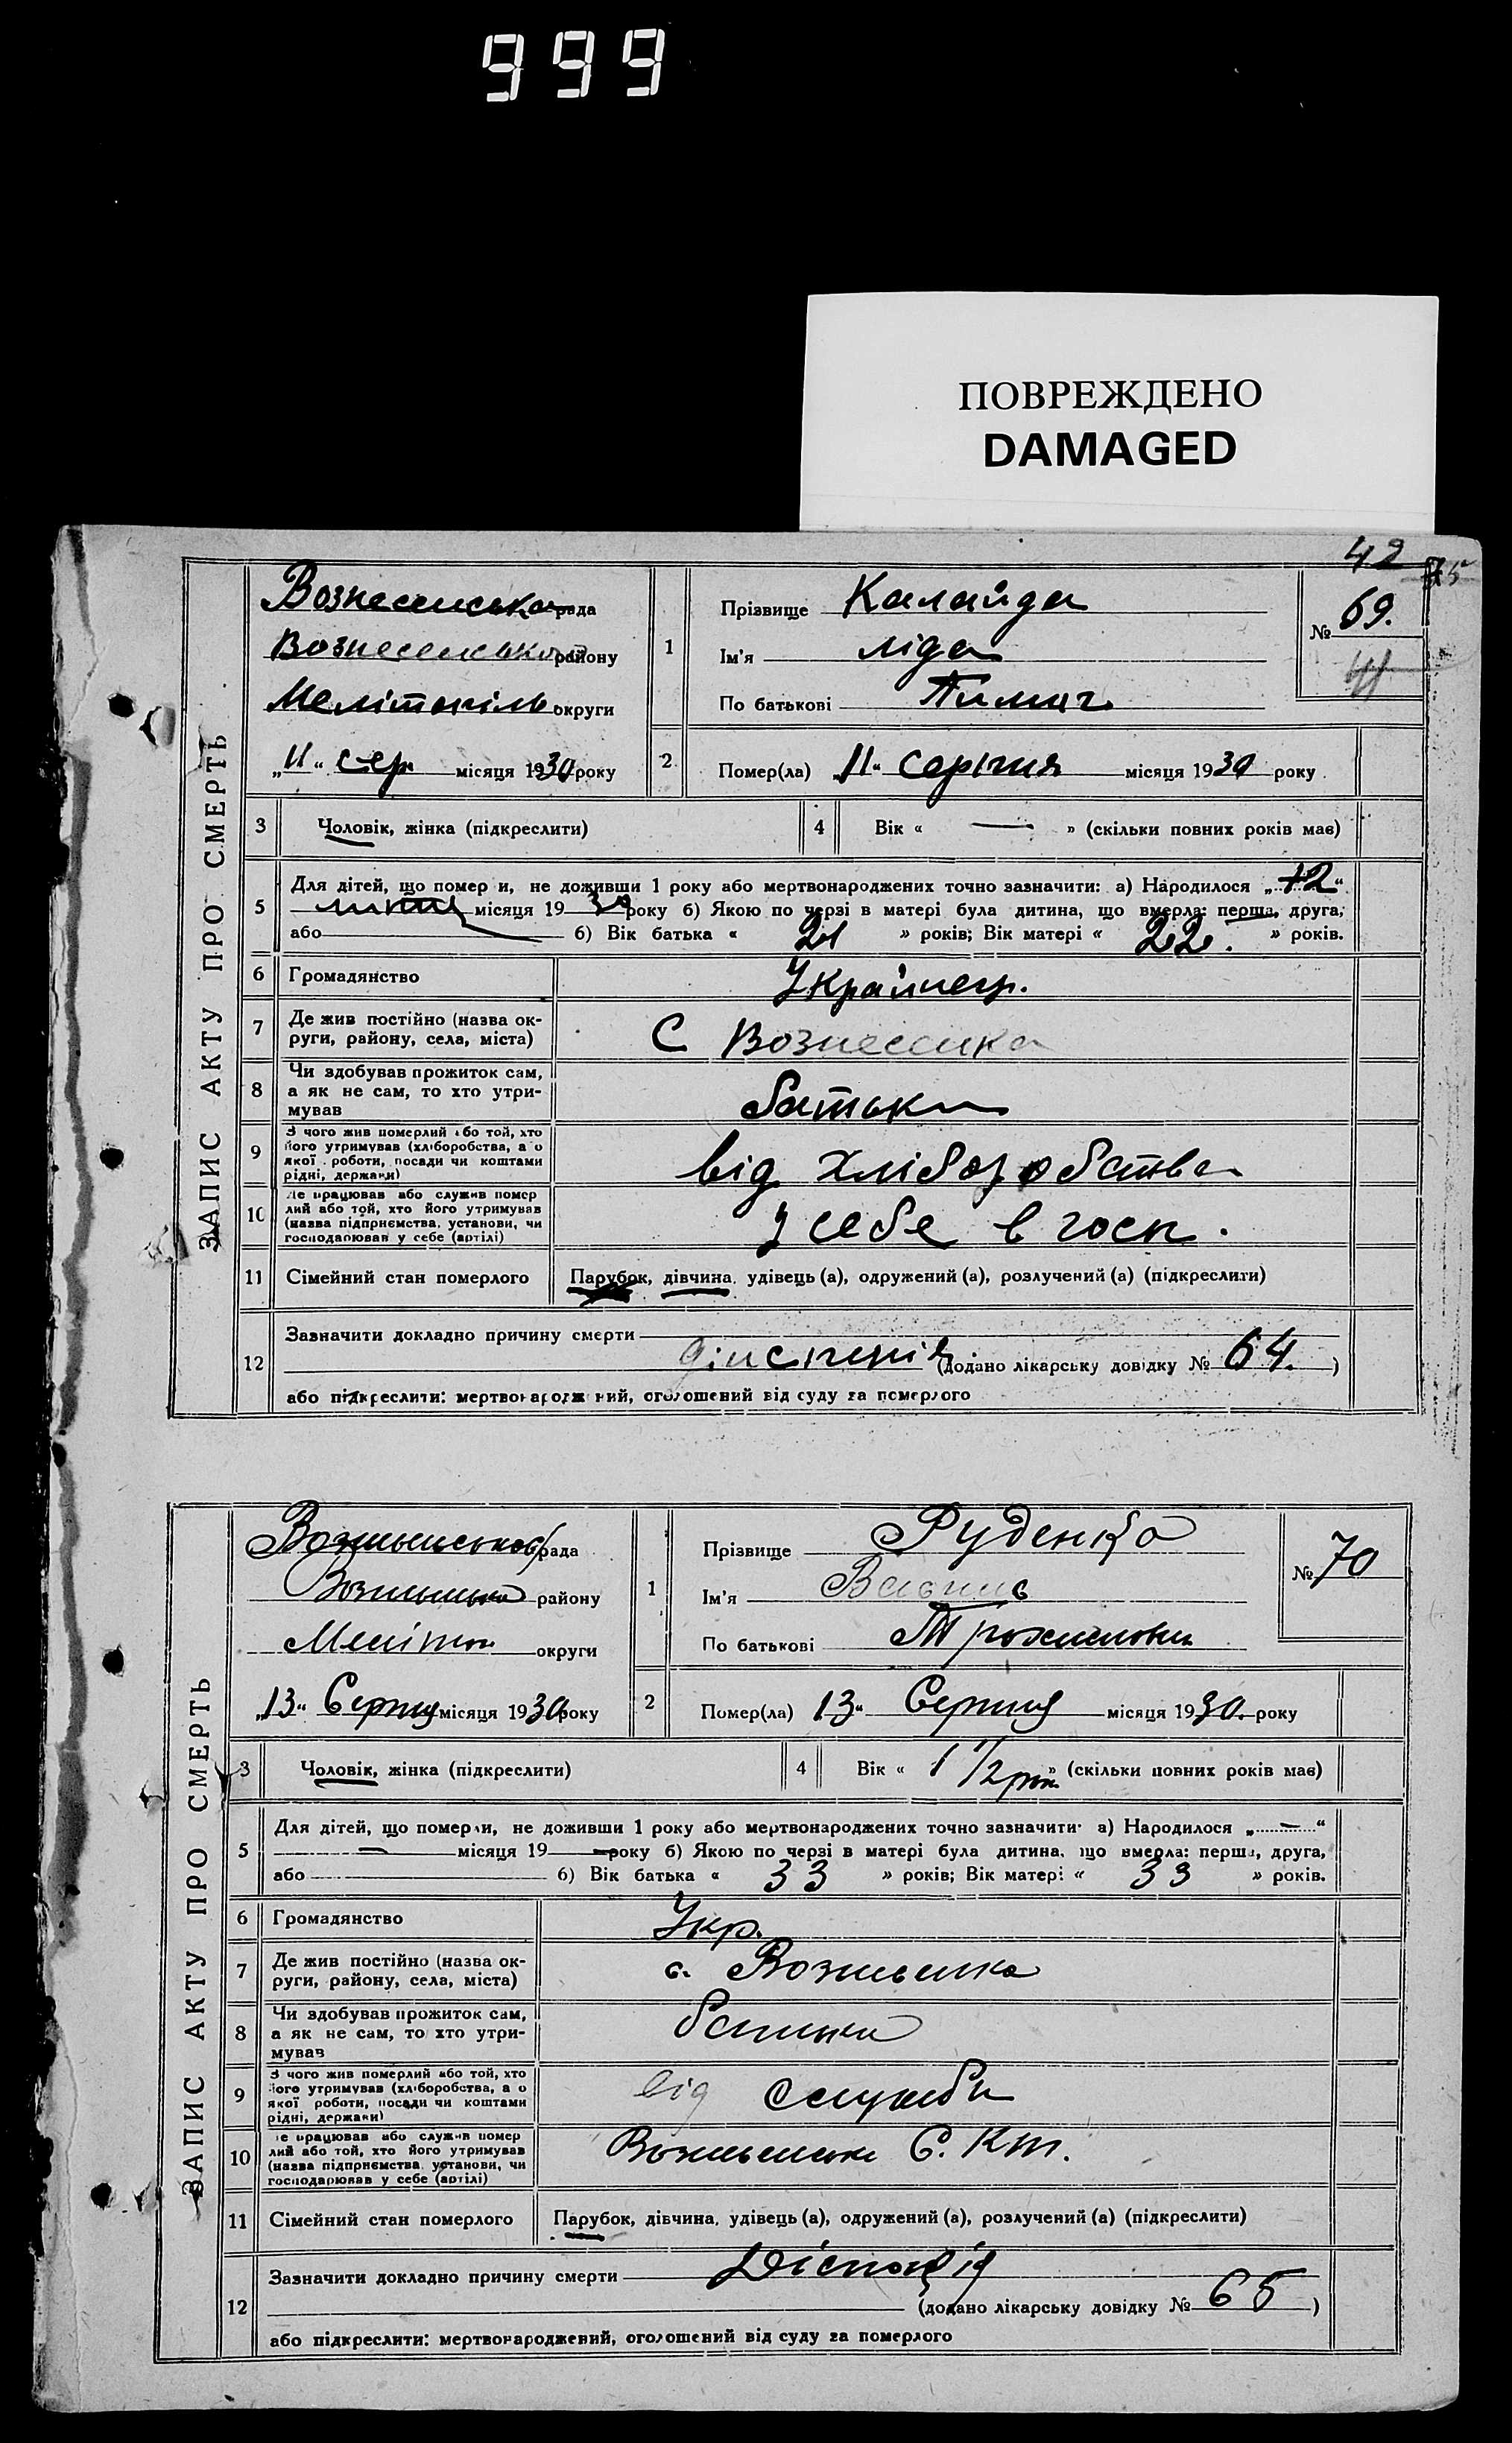 999
ПОВРЕЖДЕНО
DAMAGED
42
75
ЗАПИС АКТУ ПРО СМЕРТЬ
Вознесенська рада
Вознесенського району
Мелітопіль округи
„11“ сер. місяця 1930 року
1
Прізвище Калайда
Ім'я Ліда
По батькові Тимоч.
№ 69.
41
2
Помер(ла) „11“ серпня місяця 1930 року
3 Чоловік, жінка (підкреслити)
4 Вік « — » (скільки повних років має)
5
Для дітей, що помер и, не доживши 1 року або мертвонароджених точно зазначити: а) Народилося „12“
липня місяця 1930 року б) Якою по черзі в матері була дитина, що вмерла: перша, друга,
або б) Вік батька « 21 » років; Вік матері « 22. » років.
6 Громадянство Українец.
7
Де жив постійно (назва ок-
руги, району, села, міста)
С Вознесенка
8
Чи здобував прожиток сам,
а як не сам, то хто утри-
мував
батьки
9
З чого жив померлий або той, хто
його утримував (хліборобства, а о
якої роботи, посади чи коштами
рідні, держави)
від хліборобства
10
Де працював або служив помер
лий або той, хто його утримував
(назва підприємства, установи, чи
господарював у себе (артілі)
У себе в госп.
11 Сімейний стан померлого Парубок, дівчина, удівець (а), одружений (а), розлучений (а) (підкреслити)
12
Зазначити докладно причину смерти
(додано лікарську довідку № 64. )
або підкреслити: мертвонароджений, оголошений від суду за померлого
ЗАПИС АКТУ ПРО СМЕРТЬ
рада
району
Меліто округи
„13“ Серпня місяця 1930 року
1
Прізвище Руденко
Ім'я
По батькові
№ 70
2
Помер(ла) 13“ Серпня місяця 1930. року
3 Чоловік, жінка (підкреслити)
4 Вік « 1 1/2 рок » (скільки повних років має)
5
Для дітей, що померли, не доживши 1 року або мертвонароджених точно зазначити: а) Народилося „ — “
— місяця 19 — року б) Якою по черзі в матері була дитина, що вмерла: перша, друга,
або б) Вік батька « 33 » років; Вік матері « 33 » років.
6 Громадянство Укр.
7
Де жив постійно (назва ок-
руги, району, села, міста)
с. Вознесенка
8
Чи здобував прожиток сам,
а як не сам, то хто утри-
мував
батьки
9
З чого жив померлий або той, хто
його утримував (хліборобства, а о
якої роботи, посади чи коштами
рідні, держави)
від служби
10
Де працював або служив помер
лий або той, хто його утримував
(назва підприємства, установи, чи
господарював у себе (артілі)
11 Сімейний стан померлого Парубок, дівчина, удівець (а), одружений (а), розлучений (а) (підкреслити)
12
Зазначити докладно причину смерти
(додано лікарську довідку № 65 )
або підкреслити: мертвонароджений, оголошений від суду за померлого